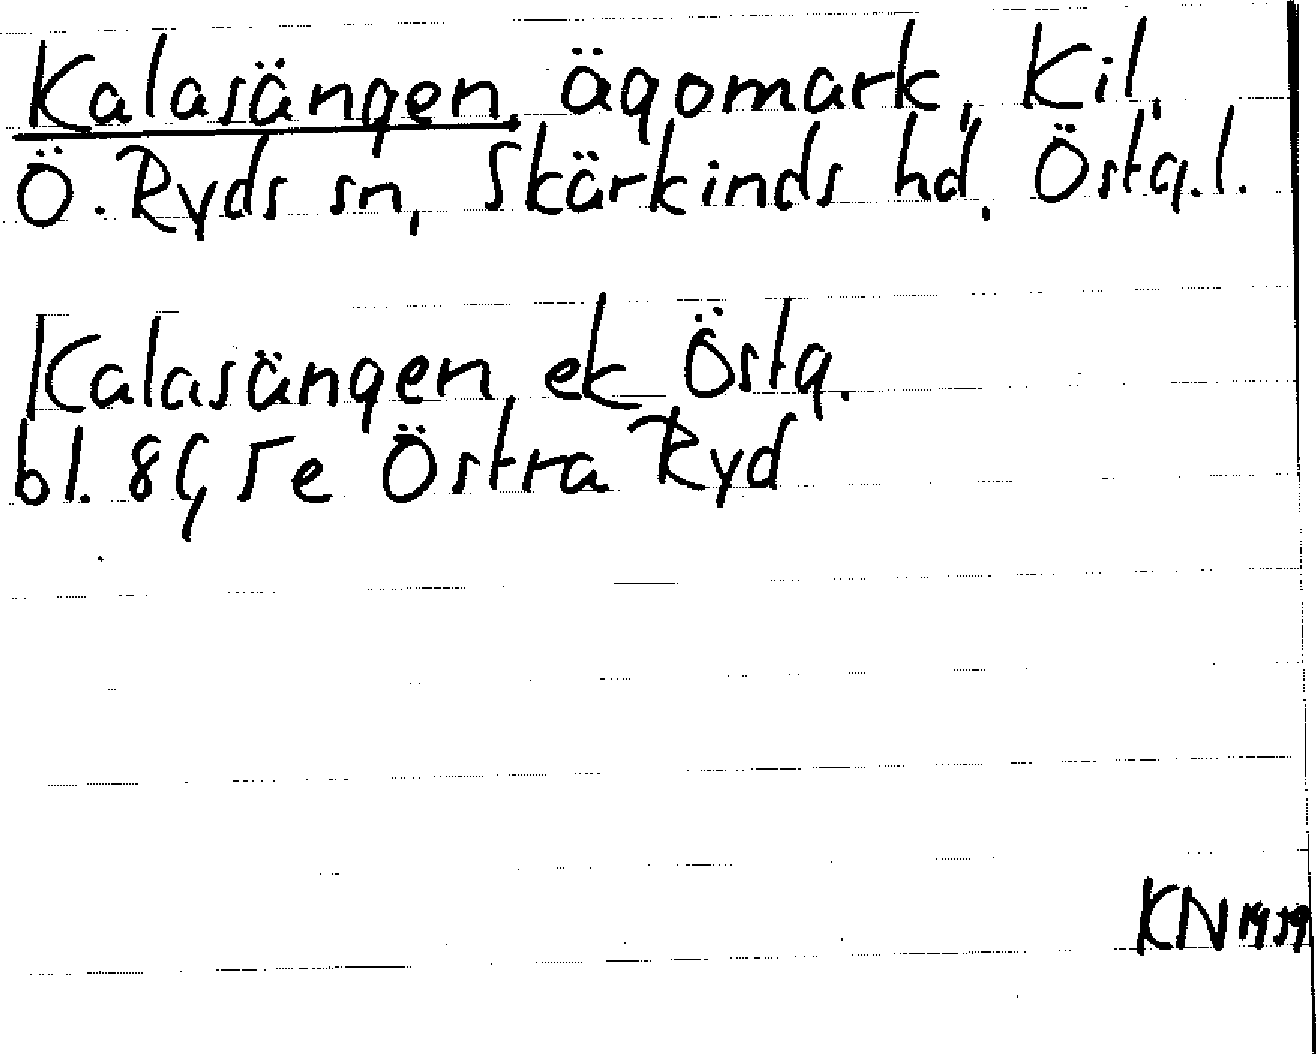 Kalasängen, ägomark, Kil,
Ö. Ryds sn, Skärkinds hd, Östg.l.
Kalasängen, ek Östg.
bl. 8G, 5e Östra Ryd
KN